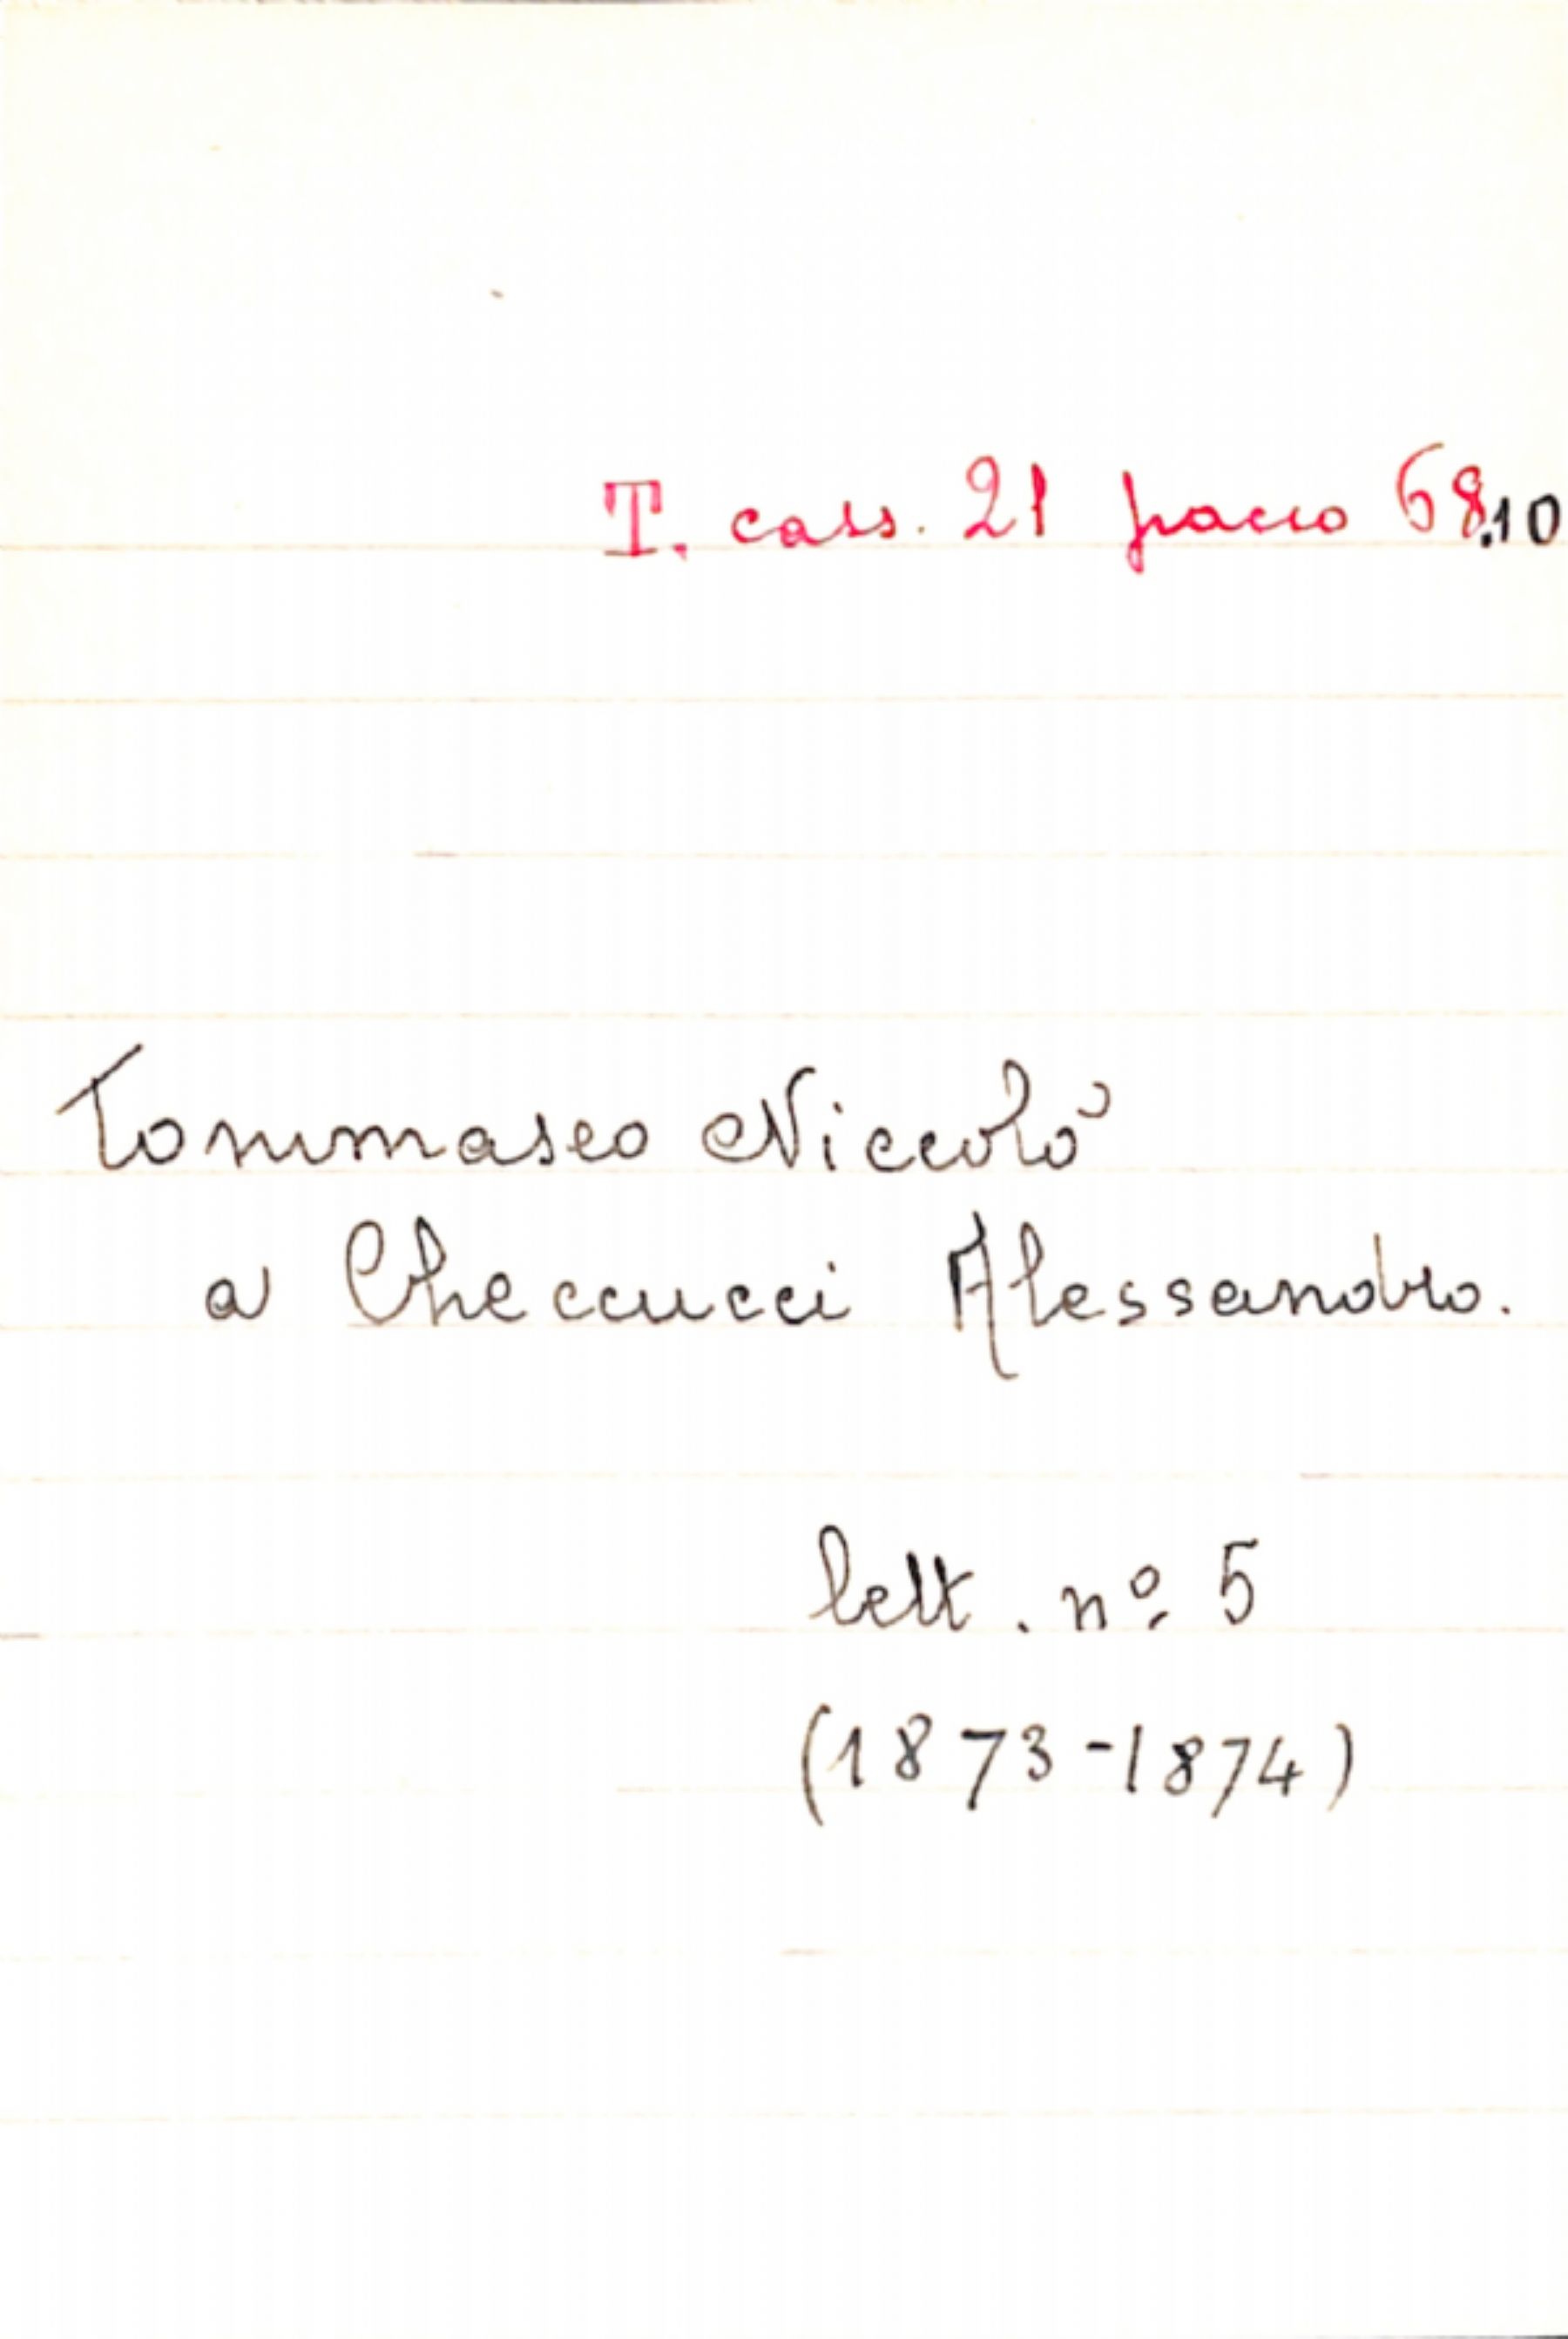 T. cass. 21 pacco 68.10
Tommaseo Niccolò
a Checcucci Alessandro.
lett. nº 5
(1873-1874)